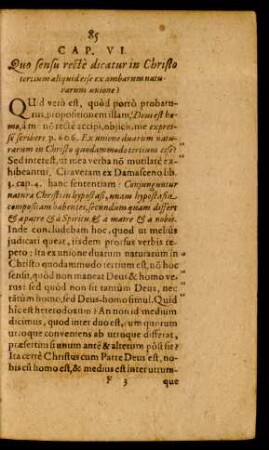 85
CAP. VI.
Quo sensu rectè dicatur in Christo
tertium aliquid esse ex ambarum natu-
rarum unione?
QUid verò est, quòd porrò probatu-
rus, propositionem illam, Deus est ho-
mo, à m non rectè accipi, objicit, me expres-
sè scribere p. 606. Ex unione duarum natu-
rarum in Christo quodammodo tertium esse?
Sed interest, ut mea verba nō mutilatè ex-
hibeantur. Citaveram ex Damasceno lib.
3. cap. 4. hanc sententiam: Conjunguntur
natura Christi in hypostasi, unam hypostasin
compositam habentes, secundum quam differt
& à patre & à Spiritu, & à matre & à nobis.
Inde concludebam hoc, quod ut meliùs
judicari queat, iisdem prorsus verbis re-
peto: Ita ex unione duarum naturarum in
Christo quodammodo tertium est, nō hoc
sensu, quòd non maneat Deus & homo ve-
rus: sed quòd non sit tantùm Deus, nec
tātùm homo, sed Deus-homo simul. Quid
hic est heterodoxum? An non id medium
dicimus, quod inter duo est, cum quorum
utroque conveniens ab utroque differat,
præsertim si unum antè & alterum pòst sit?
Ita certè Christus cum Patre Deus est, no-
bis cū homo est, & medius est inter utrum-
F 3 que